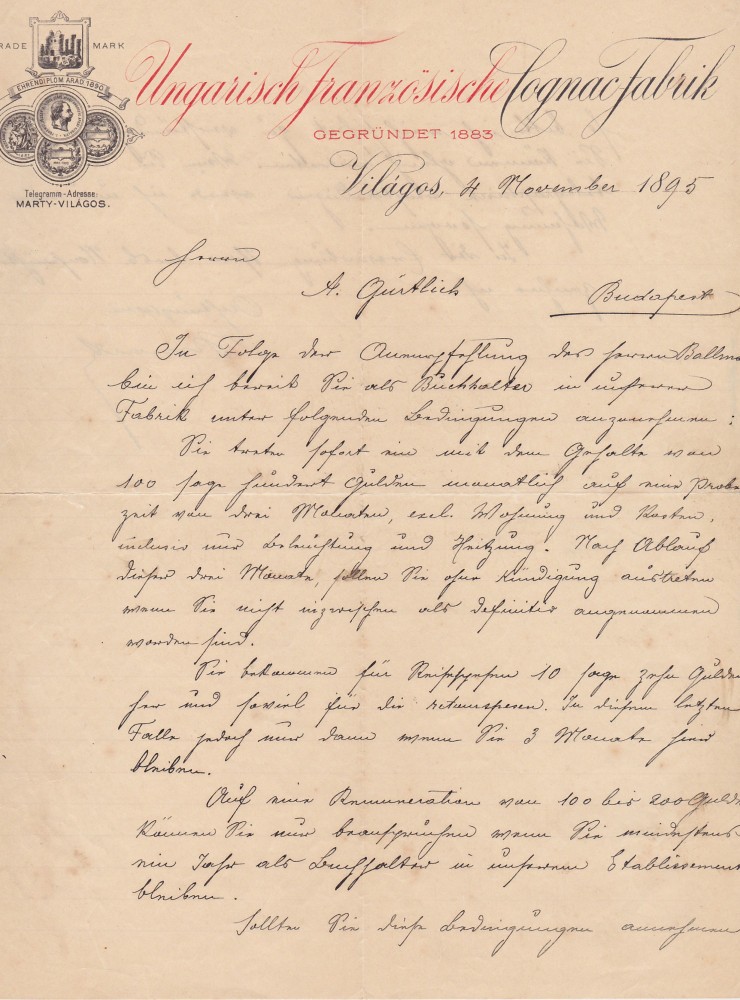 TRADE MARK
EHRENDIPLOM ARAD 1890
Ungarisch Französische Cognac Fabrik
GEGRÜNDET 1883
Telegramm-Adresse:
MARTY-VILÁGOS.
Világos, 4 November 1895
Herrn
A. Gürtlich Budapest
In Folge der Anempfehlung des Herrn
bin ich bereit Sie als Buchhalter in unserer
Fabrik unter folgenden Bedingungen anzunehmen:
Sie treten sofort ein mit dem Gehalte von
100 sage hundert Gulden monatlich auf eine Probe
zeit von drei Monaten, excl. Wohnung und Kosten,
inclusiv nur Beleuchtung und Heitzung. Nach Ablauf
dieser drei Monate, sollen Sie ohne Kündigung austreten
wenn Sie nicht inzwischen als definitiv angenommen
worden sind.
Sie bekommen für Reisespesen 10 sage zehn Gulden
her und soviel für die retourspesen. In diesem letzten
Falle jedoch nur dann wenn Sie 3 Monate hier
bleiben.
Auf eine Remuneration von 100 bis 200 Guld
können Sie nur beanspruchen wenn Sie mindestens
ein Jahr als Buchhalter in unserem Etablissement
bleiben.
Sollten Sie diese Bedingungen annehmen